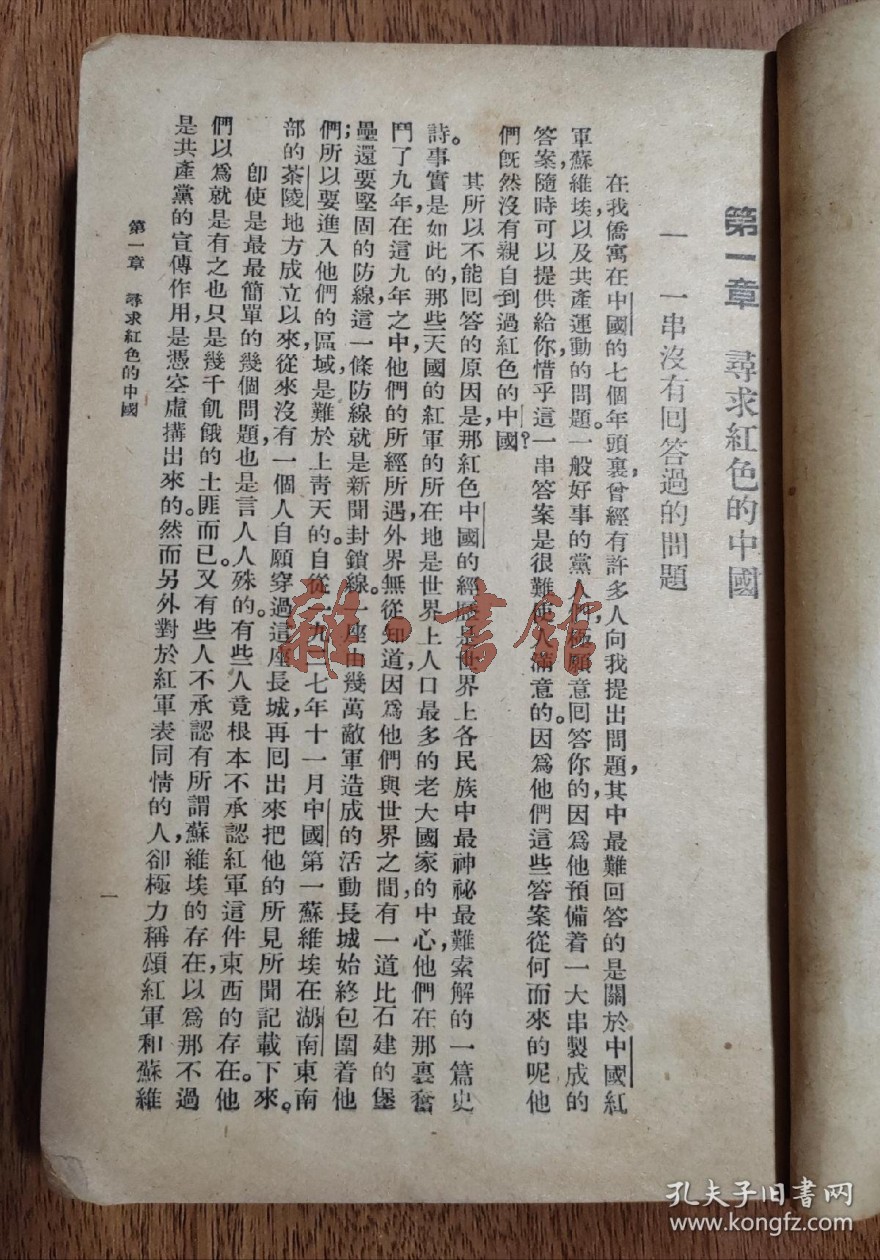 第一章　尋求紅色的中國
一　一串沒有囘答過的問題
在我僑寓在中國的七個年頭裏，曾經有許多人向我提出問題，其中最難回答的是關於中國紅
軍，蘇維埃以及共產運動的問題。一般好事的黨人們，極願意囘答你的，因爲他預備着一大串製成的
答案，隨時可以提供給你，惜乎這一串答案是很難使人滿意的。因爲他們這些答案從何而來的呢？他
們旣然沒有親自到過紅色的中國？
其所以不能回答的原因是，那紅色中國的經歷是世界上各民族中最神祕最難索解的一篇史
詩。事實是如此的，那些天國的紅軍的所在地是世界上人口最多的老大國家的中心，他們在那裏奮
鬥了九年，在這九年之中他們的所經所遇，外界無從知道，因爲他們與世界之間，有一道比石建的堡
壘還要堅固的防線，這一條防線就是新聞封鎖線。一座由幾萬敵軍造成的活動長城始終包圍着他
們；所以要進入他們的區域是難於上靑天的。自從一九二七年十一月中國第一蘇維埃在湖南東南
部的茶陵地方成立以來，從來沒有一個人自願穿過這座長城，再囘出來把他的所見所聞記載下來。
卽使是最最簡單的幾個問題，也是言人人殊的。有些人竟根本不承認紅軍這件東西的存在。他
們以爲就是有之也，只是幾千飢餓的土匪而已。又有些人不承認有所謂蘇維埃的存在，以爲那不過
是共產黨的宣傳作用，是憑空虛搆出來的。然而另外對於紅軍表同情的人，卻極力稱頌紅軍和蘇維
第一章　尋求紅色的中國
一
雜·書館
孔夫子旧书网
www.kongfz.com